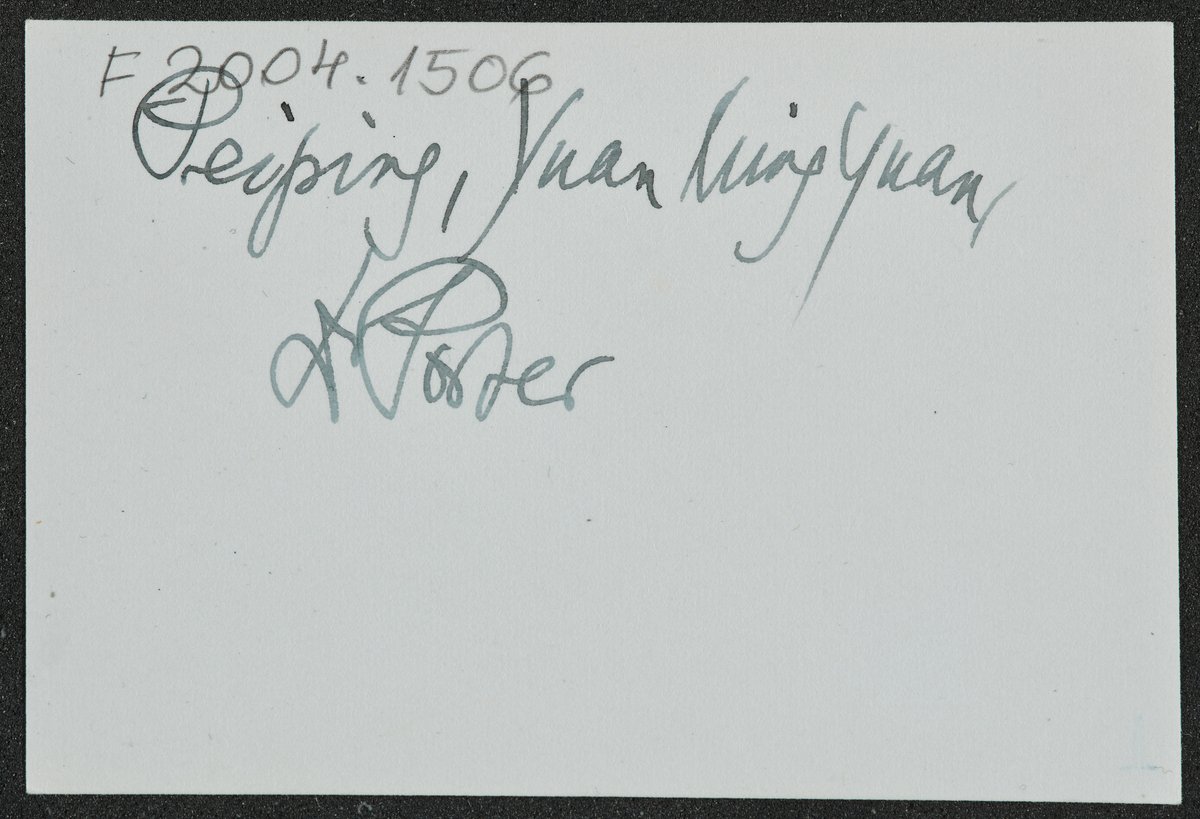 F 2004.1506
Peiping, Yuan Ming Yuan,